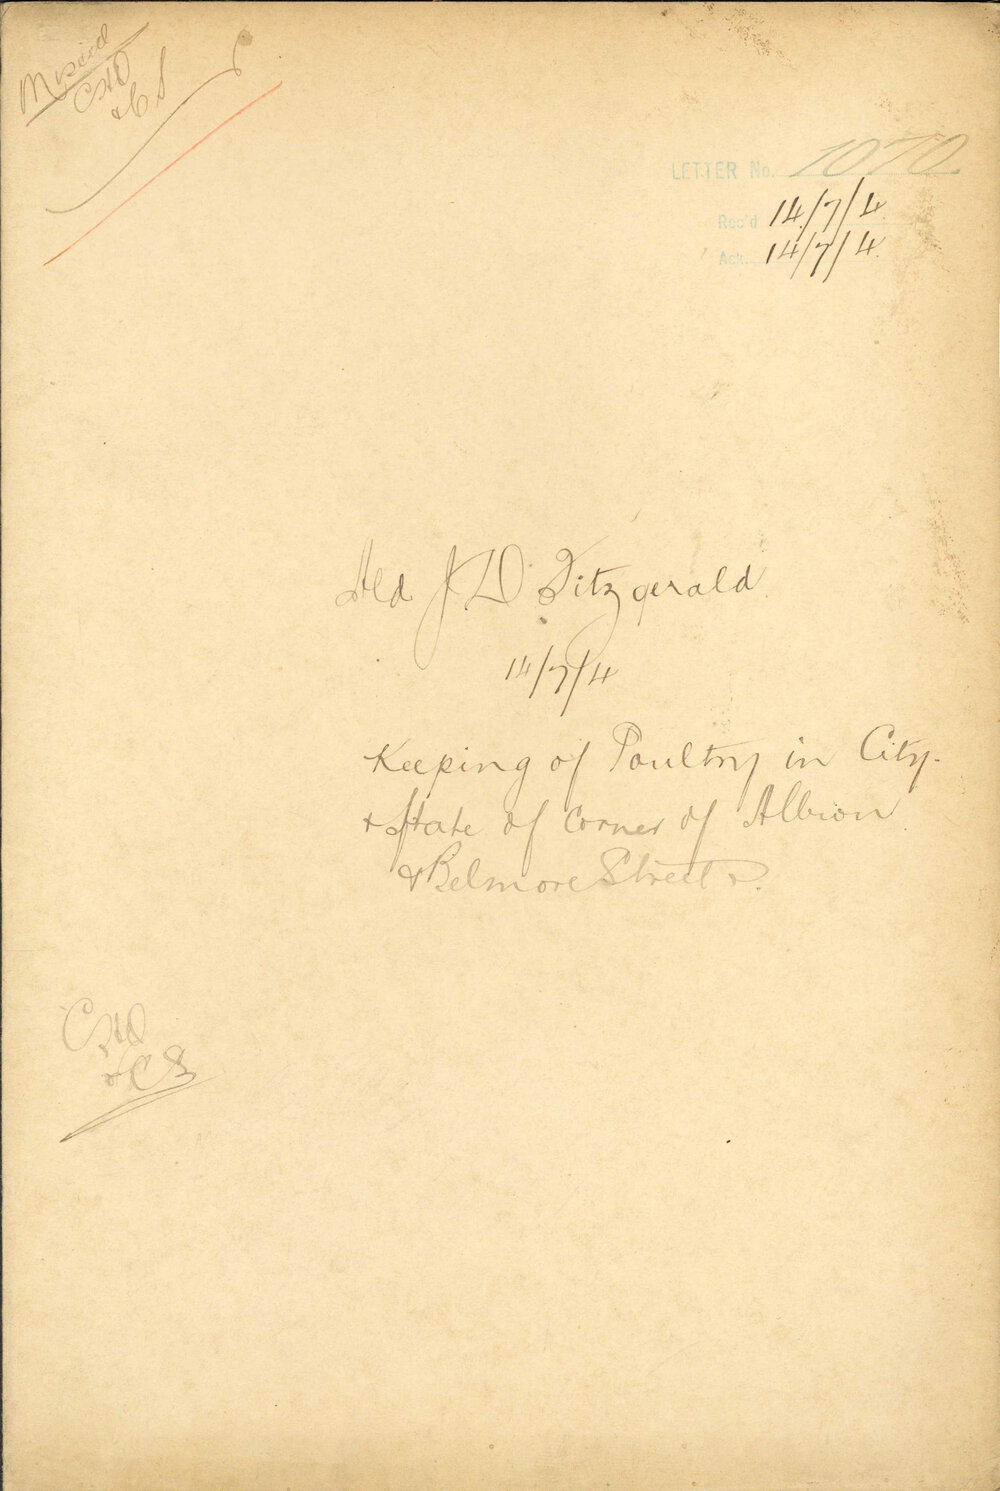 CHO
& CS
LETTER No. 1070
Rec'd 14/7/4
Ack. 14/7/4
Ald J D Fitzgerald
14/7/4
Keeping of Poultry in City.
& State of corner of Albion
& Belmore Streets.
CHO
& CS